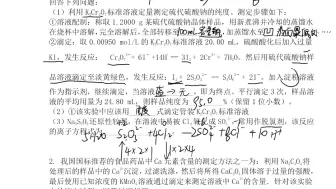 回答下列问题：
（1）利用K₂Cr₂O₇标准溶液定量测定硫代硫酸钠的纯度。测定步骤如下：
①溶液配制：称取1.2000 g某硫代硫酸钠晶体样品，用新煮沸并冷却的蒸馏水
在烧杯中溶解，完全溶解后，全部转移至100mL容量瓶中，加蒸馏水至
②滴定：取0.00950 mol/L的K₂Cr₂O₇标准溶液20.00 mL，硫酸酸化后加入过量
KI，发生反应：Cr₂O₇²⁻+6I⁻+14H⁺ 3I₂+2Cr³⁺+7H₂O。然后用硫代硫酸钠样
品溶液滴定至淡黄绿色，发生反应：I₂+2S₂O₃²⁻ S₄O₆²⁻+2I⁻。加入淀粉溶液
作为指示剂，继续滴定，当溶液蓝→无，即为终点。平行滴定3次，样品溶
液的平均用量为24.80 mL，则样品纯度为95.0%（保留1位小数）。
（2）①该实验中应该用酸式滴定管装K₂Cr₂O₇标准溶液
②Na₂S₂O₃还原性较强，在溶液中易被Cl₂氧化成SO₄²⁻，常用作脱氯剂，该反应
的离子方程式为 S₂O₃²⁻+4Cl₂ 2SO₄²⁻+8Cl⁻+10H⁺
2. 我国国标推荐的食品药品中Ca元素含量的测定方法之一为：利用Na₂C₂O₄将
处理后的样品中的Ca²⁺沉淀，过滤洗涤，然后将所得CaC₂O₄固体溶于过量的强酸，
最后使用已知浓度的KMnO₄溶液通过滴定来测定溶液中Ca²⁺的含量。针对该实验